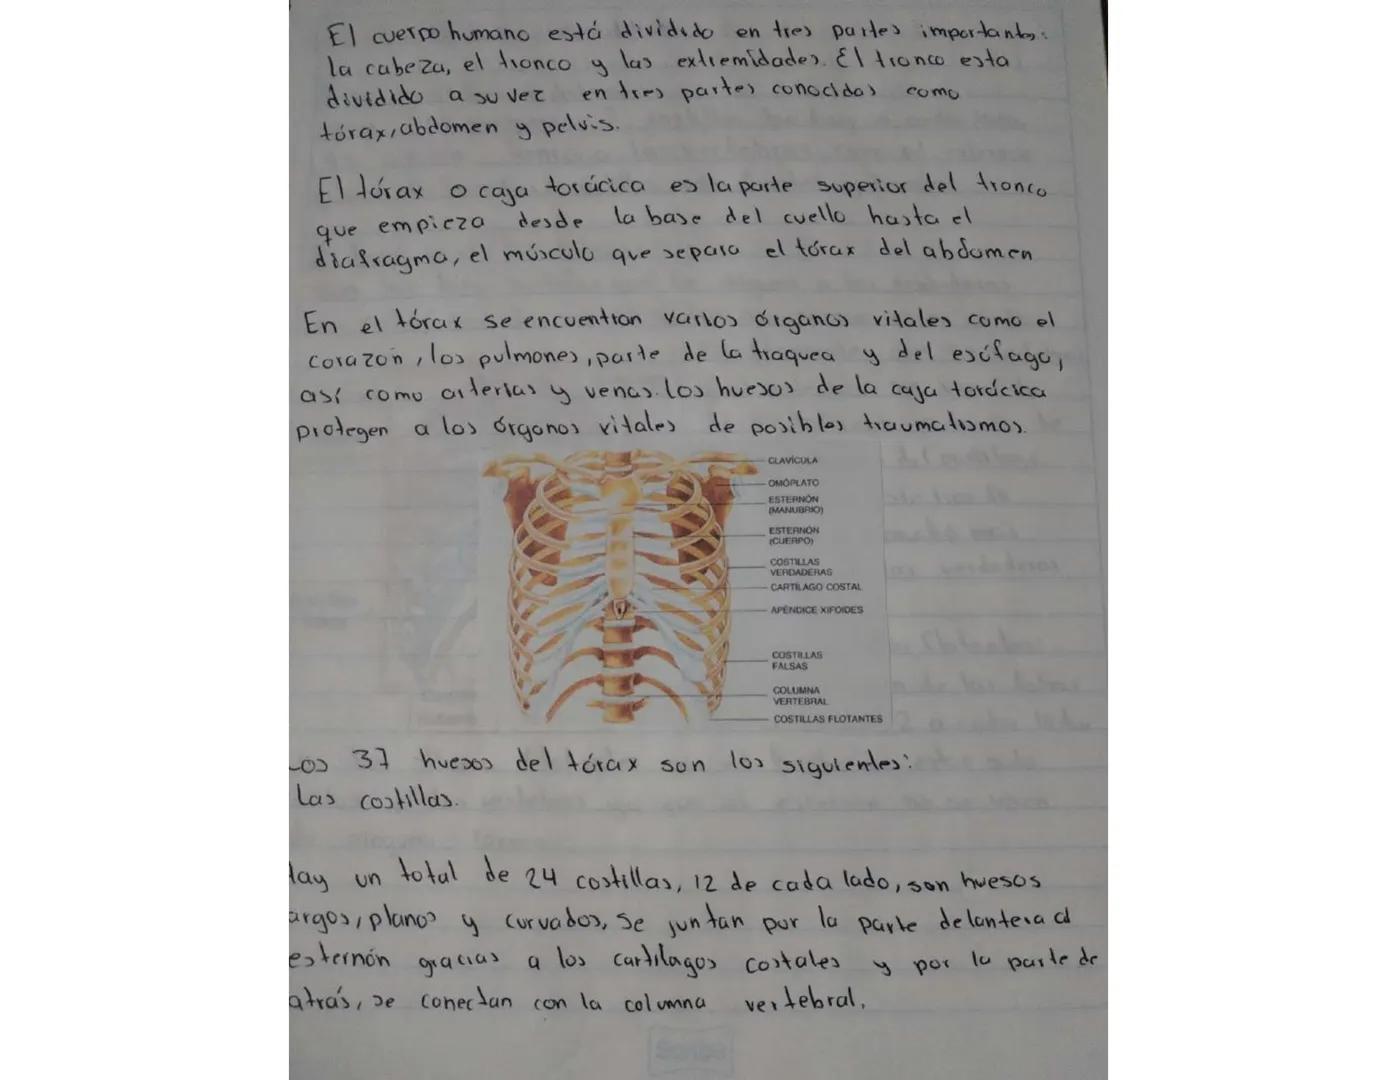 El cuerpo humano está dividido en tres partes importantes:
la cabeza, el tronco y las extremidades. El tronco esta
dividido a su vez en tres partes conocidas como
tórax, abdomen y pelvis.
El tórax o caja torácica es la parte superior del tronco
que empieza desde la base del cuello hasta el
diafragma, el músculo que separa el tórax del abdomen
En el tórax se encuentran varios órganos vitales como el
corazón, los pulmones, parte de la traquea y del esófago,
así como arterias y venas. los huesos de la caja torácica
protegen a los órganos vitales de posibles traumatismos.
CLAVÍCULA
OMÓPLATO
ESTERNÓN
(MANUBRIO)
ESTERNÓN
(CUERPO)
COSTILLAS
VERDADERAS
CARTÍLAGO COSTAL
APÉNDICE XIFOIDES
COSTILLAS
FALSAS
COLUMNA
VERTEBRAL
COSTILLAS FLOTANTES
Los 37 huesos del tórax son los siguientes:
Las costillas.
Hay un total de 24 costillas, 12 de cada lado, son huesos
largos, planos y curvados, se juntan por la parte delantera al
esternón gracias a los cartílagos costales y por la parte de
atrás, se conectan con la columna vertebral.